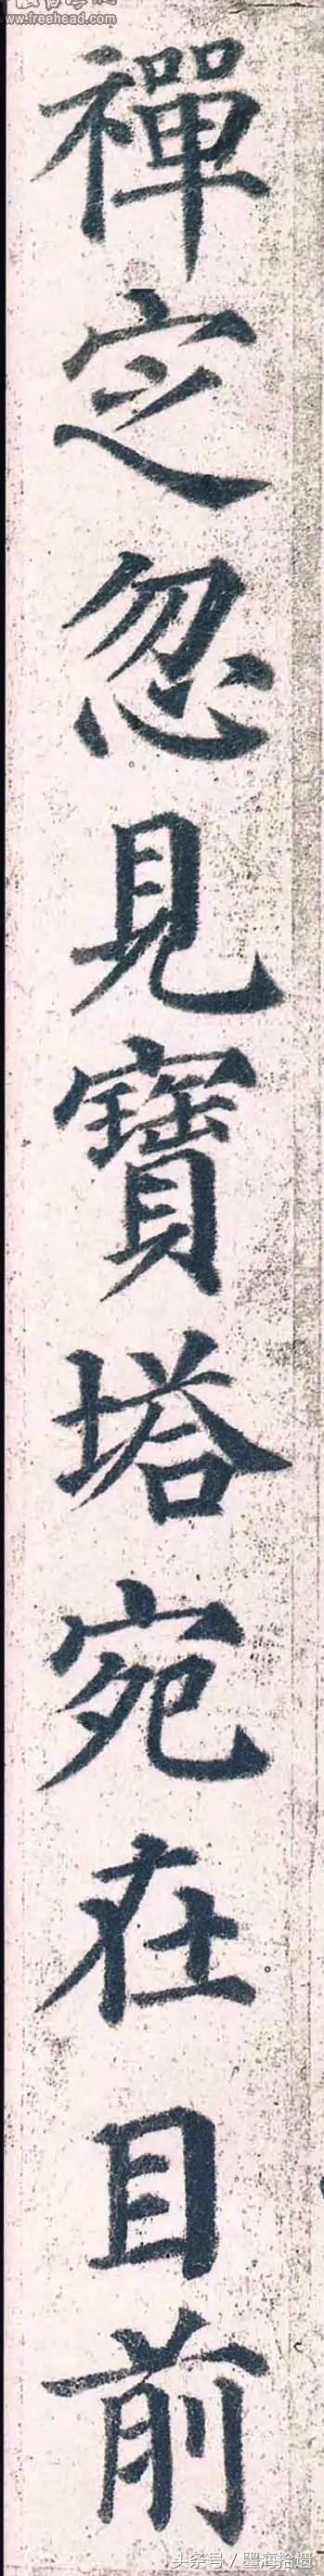 www.freehead.com
禪定忽見寶塔宛在目前
头条号／墨海拾遗